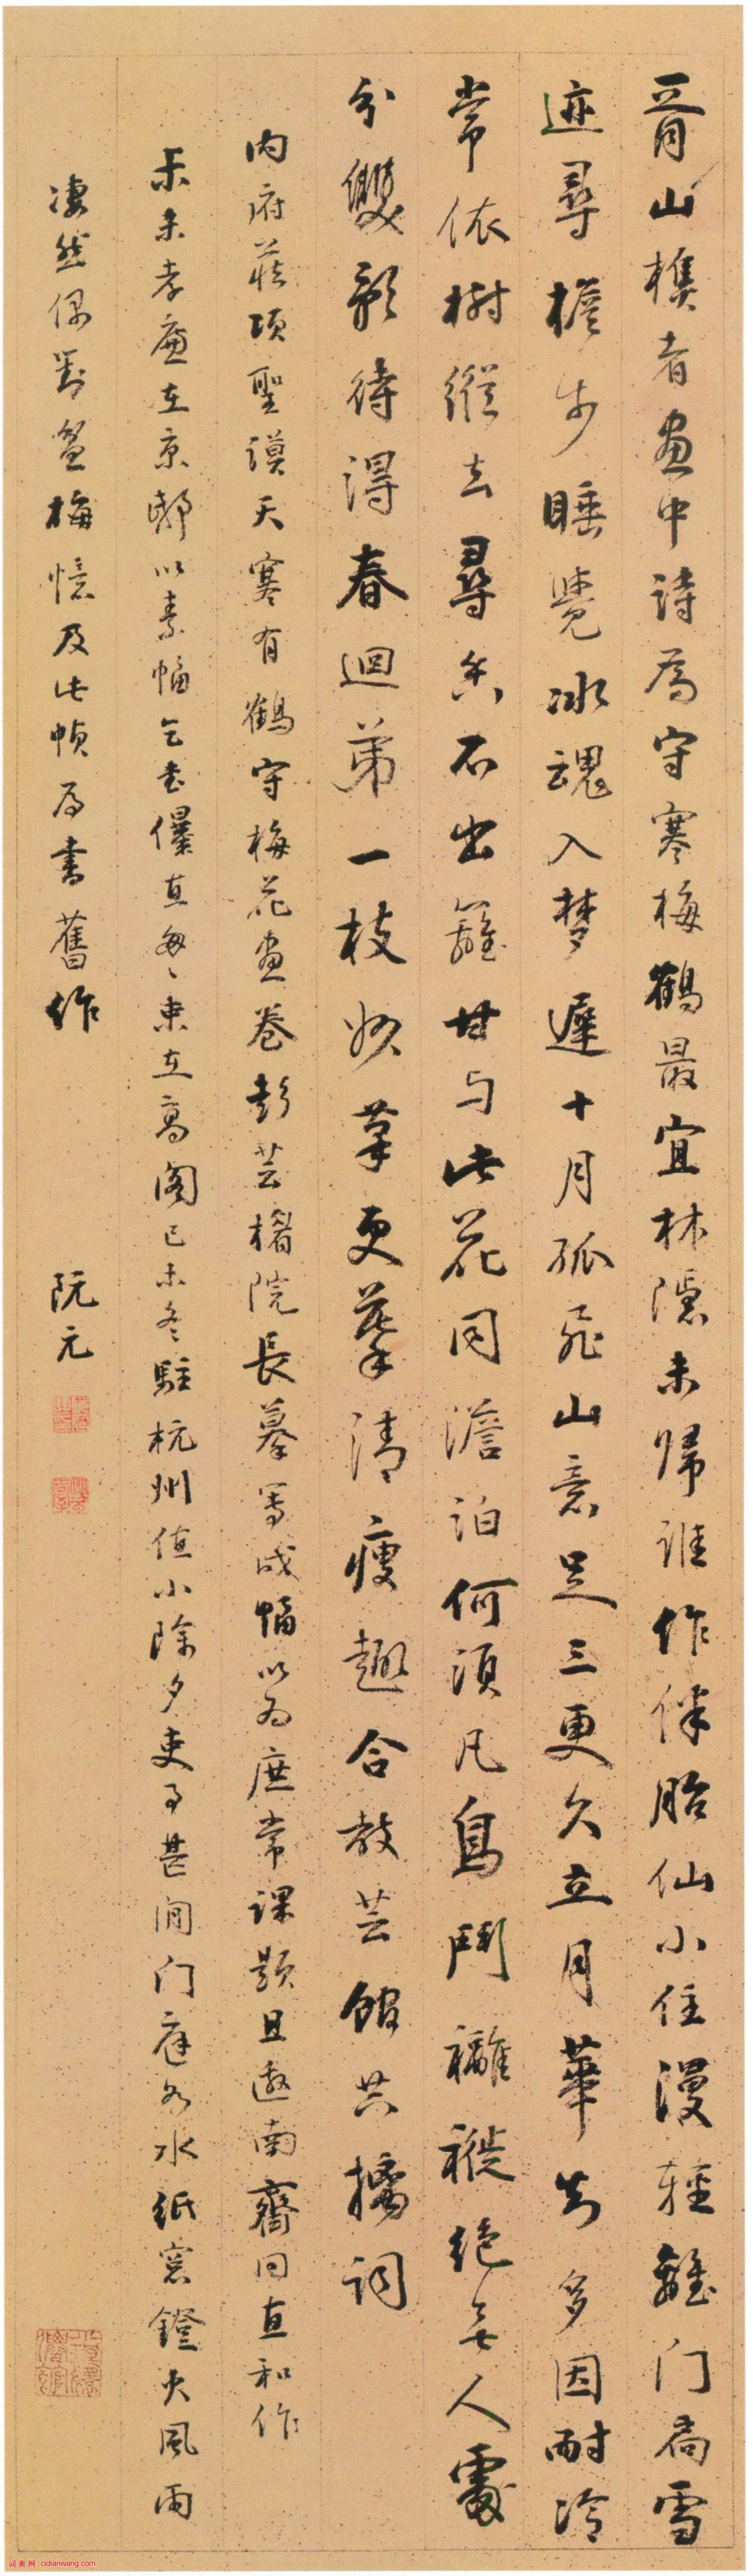 胥山樵者画中詩為守寒梅鶴最宜林隱未歸誰作伴胎仙小住漫輕離門扃雪
迹尋檐步睡覺冰魂入梦遲十月孤飛山意足三更久立月華知多因耐冷
常依樹縱去尋香不出籬甘与此花同澹泊何須凡鳥鬥䙰褷絶無人處
分雙影待得春迴第一枝妙草更摹清瘦趣合教芸館共摛詞
内府莊項聖謨天寒有鶴守梅花画卷彭芸楣院長摹寫成幅以為庶常課題且邀南齋同直和作
未孝廉在京邸以素幅乞書儤直匆匆束在高阁己未冬駐杭州值小除夕吏事甚閒门庭如水紙窓鐙火風雨
凄然偶對盆梅憶及此幀為書舊作
阮元
词典网·cidianwang.com